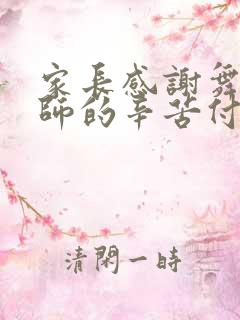 家長感謝舞
師的辛苦付
清閑一時